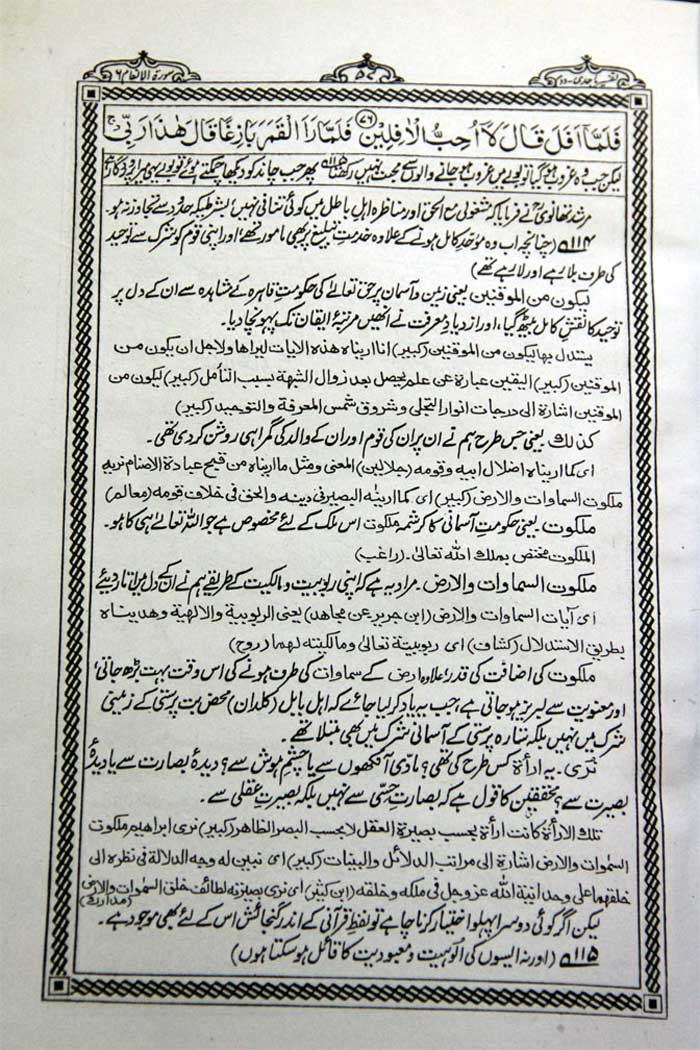 تفسیر ماجدی - دوم
۵۷
سورة الانعام ۶
فَلَمَّآ اَفَلَ قَالَ لَآ اُحِبُّ الْاٰفِلِيْنَ ۷۶ فَلَمَّا رَاَ الْقَمَرَ بَازِغًا قَالَ هٰذَا رَبِّيْ ج
لیکن جب وہ غروب ہوگیا تو بولے میں غروب ہوجانے والوں سے محبت نہیں رکھتا ۱۱۵ پھر جب چاند کو دیکھا چمکتے ہوئے تو بولے یہی میرا پروردگار ہے
مرشد تھانویؒ نے فرمایا کہ مشغولی مع الحق اور مناظرہ اہل باطل میں کوئی تنافی نہیں، بشرطیکہ حدود سے تجاوز نہ ہو
۱۱۴ (چنانچہ اب وہ موحّد کامل ہونے کے علاوہ خدمت تبلیغ پر بھی مامور تھے، اور اپنی قوم کو شرک سے توحید
کی طرف بلا رہے اور لا رہے تھے)
لیکون من الموقنین یعنی زمین و آسمان پر حق تعالےٰ کی حکومتِ قاہرہ کے مشاہدہ سے ان کے دل پر
توحید کا نقش کامل بیٹھ گیا، اور ازدیادِ معرفت نے انھیں مرتبۂ ایقان تک پہونچا دیا۔
یستدل بھا لیکون من الموقنین (کبیر) انا اریناہ ھذہ الایات لیراھا ولاجل ان یکون من
الموقنین (کبیر) الیقین عبارة عن علم یحصل بعد زوال الشبهة بسبب التأمل (کبیر) لیکون من
الموقنین اشارة الی درجات انوار التجلی وشروق شمس المعرفة والتوحید (کبیر)
کذلك یعنی جس طرح ہم نے ان پر ان کی قوم اور ان کے والد کی گمراہی روشن کردی تھی۔
ای کما اریناہ اضلال ابیه وقومه (جلالین) المعنی ومثل ما اریناہ من قبیح عبادة الاصنام نریه
ملکوت السماوات والارض (کبیر) ای کما اریناہ البصیرفی دینه والحق فی خلاف قومه (معالم)
ملکوت یعنی حکومتِ آسمانی کا کرشمہ ملکوت اس ملک کے لئے مخصوص ہے جو اللہ تعالےٰ ہی کا ہو۔
الملکوت مختص بملك الله تعالیٰ۔ (راغب)
ملکوت السماوات والارض۔ مراد یہ ہے کہ اپنی ربوبیت و مالکیت کے طریقے ہم نے ان کے دل میں اتار دیئے
ای آیات السماوات والارض (ابن جریر عن مجاهد) یعنی الربوبیة والالهیة وهدیناہ
بطریق الاستدلال (کشاف) ای ربوبیته تعالیٰ ومالکیته لهما (روح)
ملکوت کی اضافت کی قدر، علاوہ ارض کے سماوات کی طرف ہونے کی اس وقت بہت بڑھ جاتی،
اور معنویت سے لبریز ہوجاتی ہے، جب یہ یاد کرلیا جائے کہ اہل بابل (کلدان) محض بت پرستی کے زمینی
شرک میں نہیں بلکہ ستارہ پرستی کے آسمانی شرک میں بھی مبتلا تھے۔
نُری۔ یہ ارأة کس طرح کی تھی؟ مادّی آنکھوں سے یا چشمِ ہوش سے؟ دیدۂ بصارت سے یا دیدۂ
بصیرت سے؟ محققین کا قول ہے کہ بصارتِ حسّی سے نہیں بلکہ بصیرتِ عقلی سے۔
تلك الارأة کانت ارأة بحسب بصیرة العقل لا بحسب البصر الظاهر (کبیر) نری ابراهیم ملکوت
السمٰوات والارض اشارة الی مراتب الدلائل والبینات (کبیر) ای نبین له وجه الدلالة فی نظره الی
خلقهما علی وحدانیة الله عز وجل فی ملکه وخلقه (ابن کثیر) ای نری بصیرته لطائف خلق السمٰوات والارض
(مدارک)
لیکن اگر کوئی دوسرا پہلو اختیار کرنا چاہے تو لفظِ قرآنی کے اندر گنجائش اس کے لئے بھی موجود ہے۔
۱۱۵ (اور نہ ایسوں کی الوہیت و معبودیت کا قائل ہوسکتا ہوں)